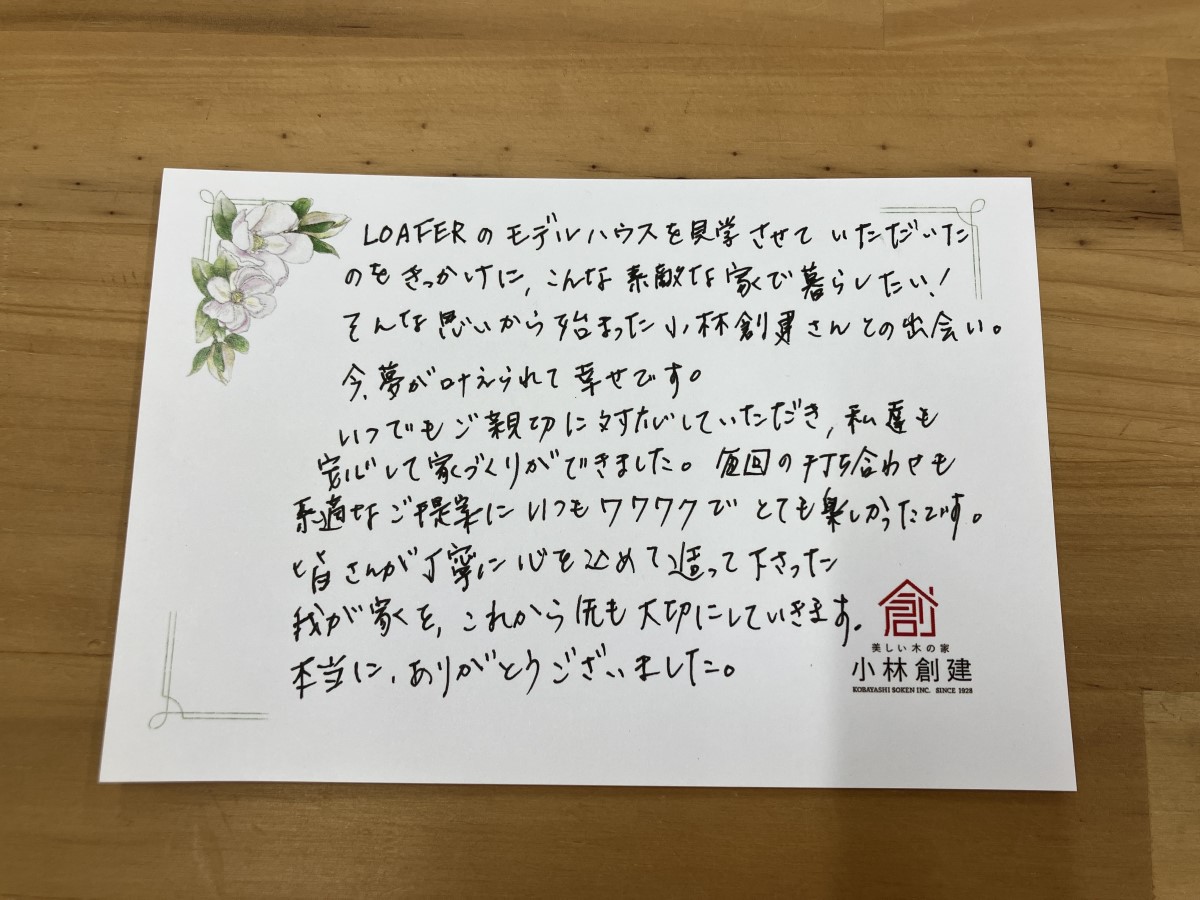 LOAFERのモデルハウスを見学させていただいた
のをきっかけに、こんな素敵な家で暮らしたい!
そんな思いから始まった小林創建さんとの出会い。
今、夢が叶えられて幸せです。
いつでもご親切に対応していただき、私達も
安心して家づくりができました。毎回の打ち合わせも
素適なご提案にいつもワクワクでとても楽しかったです。
皆さんが丁寧に心を込めて造って下さった
我が家を、これから先も大切にしていきます。
本当に、ありがとうございました。
創
美しい木の家
小林創建
KOBAYASHI SOKEN INC. SINCE 1928